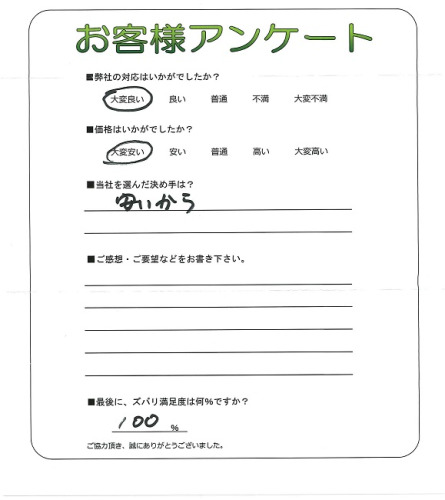 お客様アンケート
■弊社の対応はいかがでしたか？
大変良い 良い 普通 不満 大変不満
■価格はいかがでしたか？
大変安い 安い 普通 高い 大変高い
■当社を選んだ決め手は？
安いから
■ご感想・ご要望などをお書き下さい。
■最後に、ズバリ満足度は何%ですか？
100 %
ご協力頂き、誠にありがとうございました。